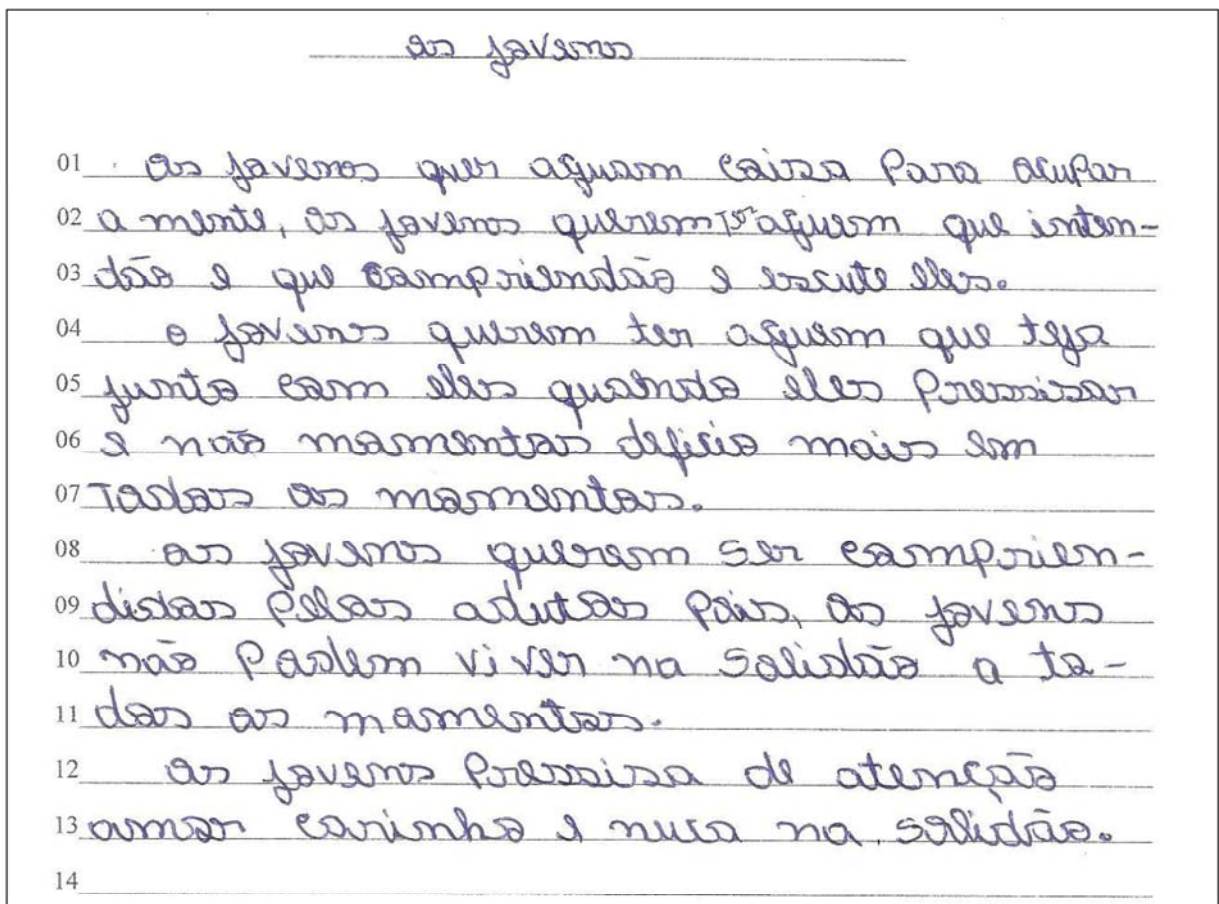 os jovens
01 os jovens quer aguam coisa Para ocupar
02 a mente, os jovens querem ter aguem que inten-
03 dão e que compriendão e escute eles.
04 o jovens querem ter aguem que teja
05 junto com eles quando eles Pressisar
06 e não momentos deficio mais em
07 Todos os momentos.
08 os jovens querem ser comprien-
09 didos Pelos adutos Pois, os jovens
10 não Podem viver na Solidão a to-
11 dos os momentos.
12 os jovens Pressisa de atenção
13 amor carinho e nuca na solidão.
14